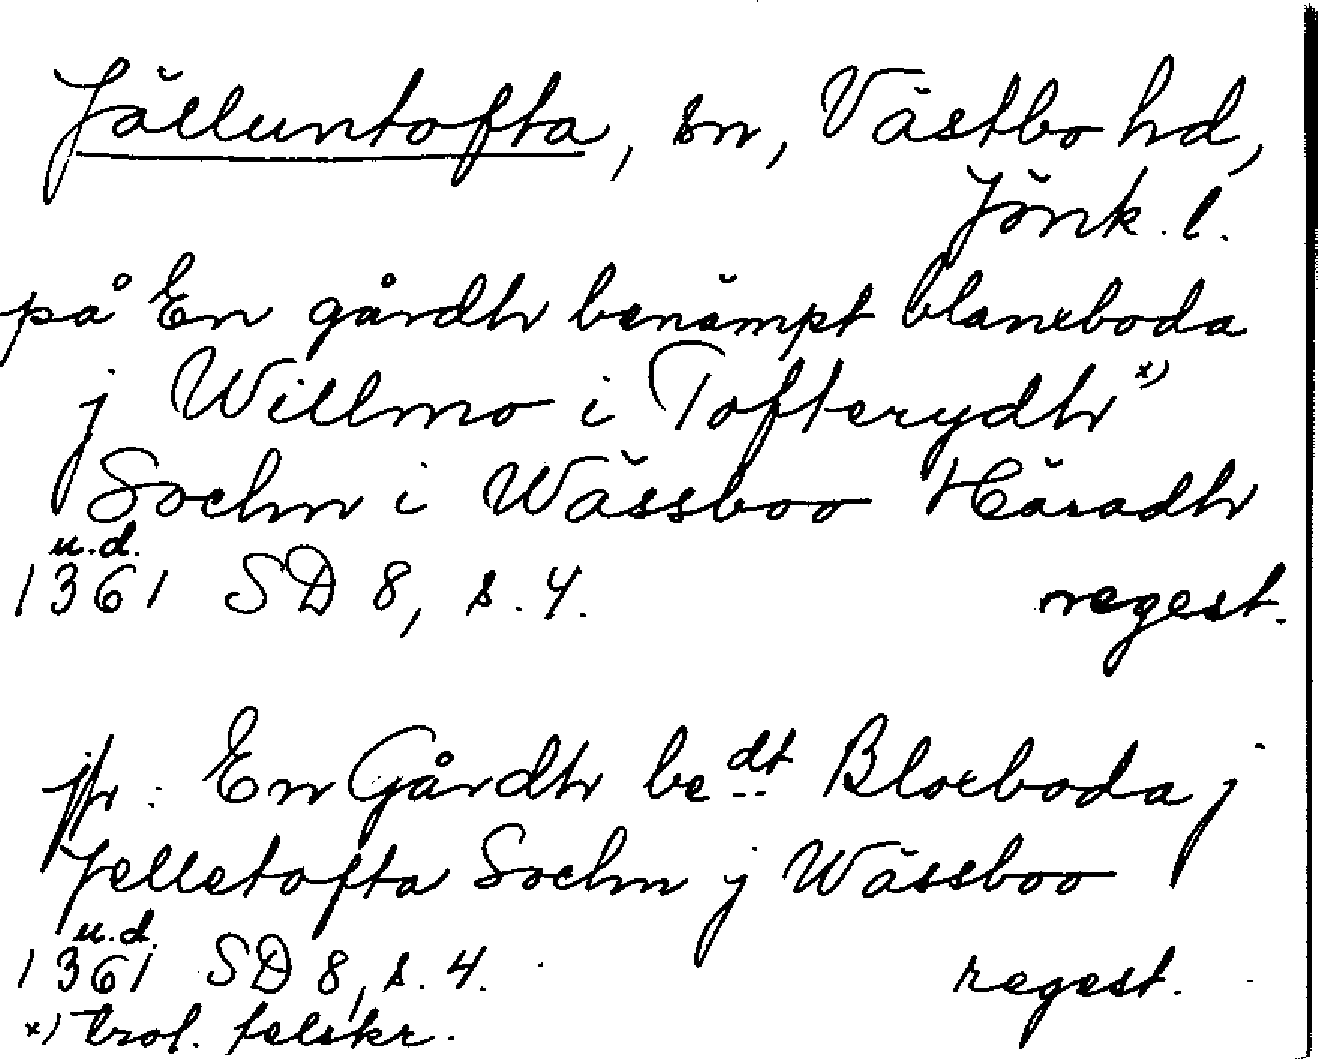 Jälluntofta, sn, Västbo hd,
Jönk. l.
på En gårdh benämpt blaneboda
j Willmo i Tofterydh x)
Sochn i Wässboo Häradh
u.d.
1361 SD 8, s. 4. regest.
jfr: En Gårdh bedt Bloeboda j
Jelletofta Sochn j Wässboo
u.d.
1361 SD 8, s. 4. regest.
x) trol. felskr.